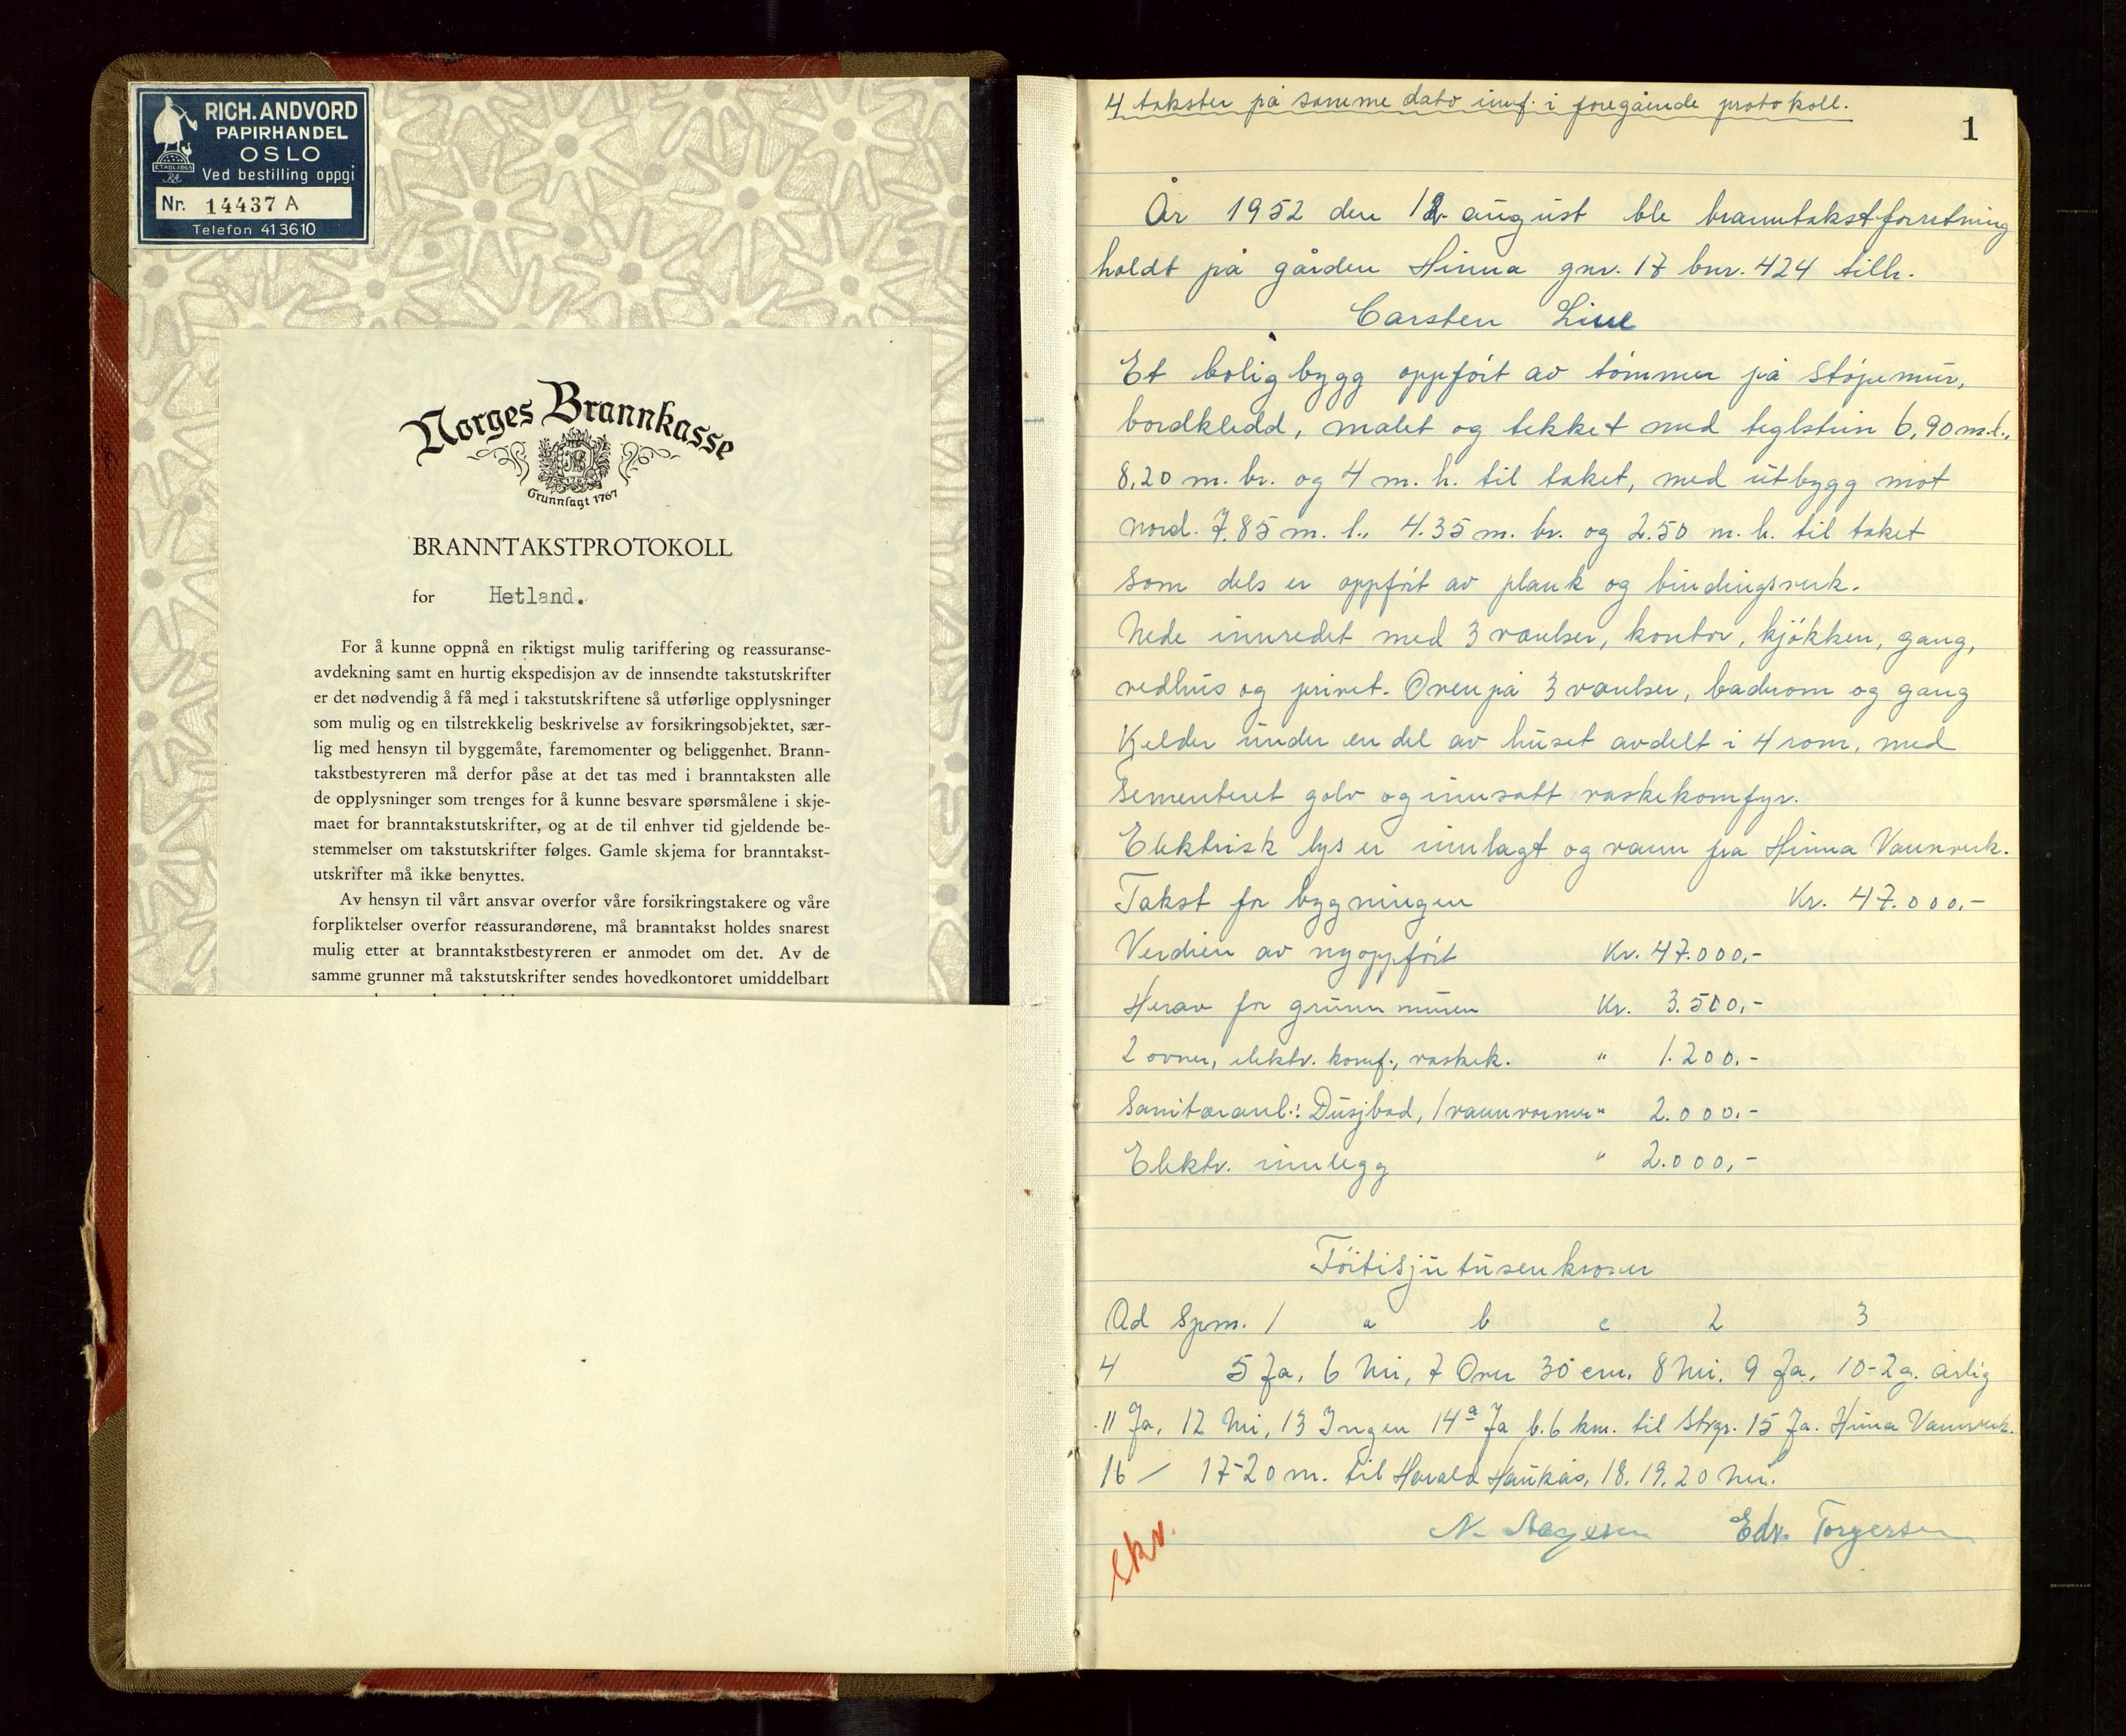 RICH. ANDVORD
PAPIRHANDEL
OSLO
ETABL.1865
Ved bestilling oppgi
Nr. 14437 A
Telefon 413610
Norges Brannkasse
Grunnlagt 1767
BRANNTAKSTPROTOKOLL
for Hetland.
For å kunne oppnå en riktigst mulig tariffering og reassuranse-
avdekning samt en hurtig ekspedisjon av de innsendte takstutskrifter
er det nødvendig å få med i takstutskriftene så utførlige opplysninger
som mulig og en tilstrekkelig beskrivelse av forsikringsobjektet, sær-
lig med hensyn til byggemåte, faremomenter og beliggenhet. Brann-
takstbestyreren må derfor påse at det tas med i branntaksten alle
de opplysninger som trenges for å kunne besvare spørsmålene i skje-
maet for branntakstutskrifter, og at de til enhver tid gjeldende be-
stemmelser om takstutskrifter følges. Gamle skjema for branntakst-
utskrifter må ikke benyttes.
Av hensyn til vårt ansvar overfor våre forsikringstakere og våre
forpliktelser overfor reassurandørene, må branntakst holdes snarest
mulig etter at branntakstbestyreren er anmodet om det. Av de
samme grunner må takstutskrifter sendes hovedkontoret umiddelbart
4 takster på samme dato innf. i foregående protokoll.
1
År 1952 den august ble branntakstforretning
holdt på gården Hinna gnr. 17 bnr. 424 tilh.
Carsten
Et bolig bygg oppført av tømmer på støpemur,
bordkledd, malet og tekket med teglstein 6,90 m.l.,
8,20 m. br. og 4 m. h. til taket, med utbygg mot
nord. 7.85 m. l., 4.35 m. br. og 2.50 m. h. til taket
som dels er oppført av plank og bindingsverk.
Nede innredet med 3 værelser, kontor, kjøkken, gang,
vedhus og privet. Oven på 3 værelser, badrom og gang
Kjelder under en del av huset avdelt i 4 rom, med
sementert golv og innsatt vaskekomfyr.
Elektrisk lys er innlagt og vann fra Hinna Vannverk.
Takst for bygningen Kr. 47.000,-
Verdien av nyoppført Kr. 47.000,-
Herav for grunnmuren Kr. 3.500,-
2 ovner, elektr. komf., vaskek. " 1.200.-
Sanitæranl.: Dusjbad, 1 vannvarmer " 2.000.-
Elektr. innlegg " 2.000,-
Førtisju tusen kroner
Ad Spm. 1 a b c 2 3
4 5 Ja, 6 Nei, 7 Over 30 cm. 8 Nei. 9 Ja. 10-2 g. årlig
11 Ja, 12 Nei, 13 Ingen 14 a Ja b. 6 km. til Stvgr. 15 Ja. Hinna Vannverk.
16 / 17-20 m. til Harald Haukås, 18. 19. 20 Nei.
N. Aagesen Edv. Torgersen
skr.